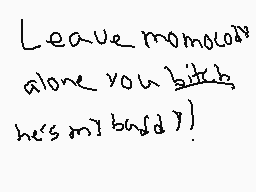 Leave momocody
alone you bitch
he's my buddy!